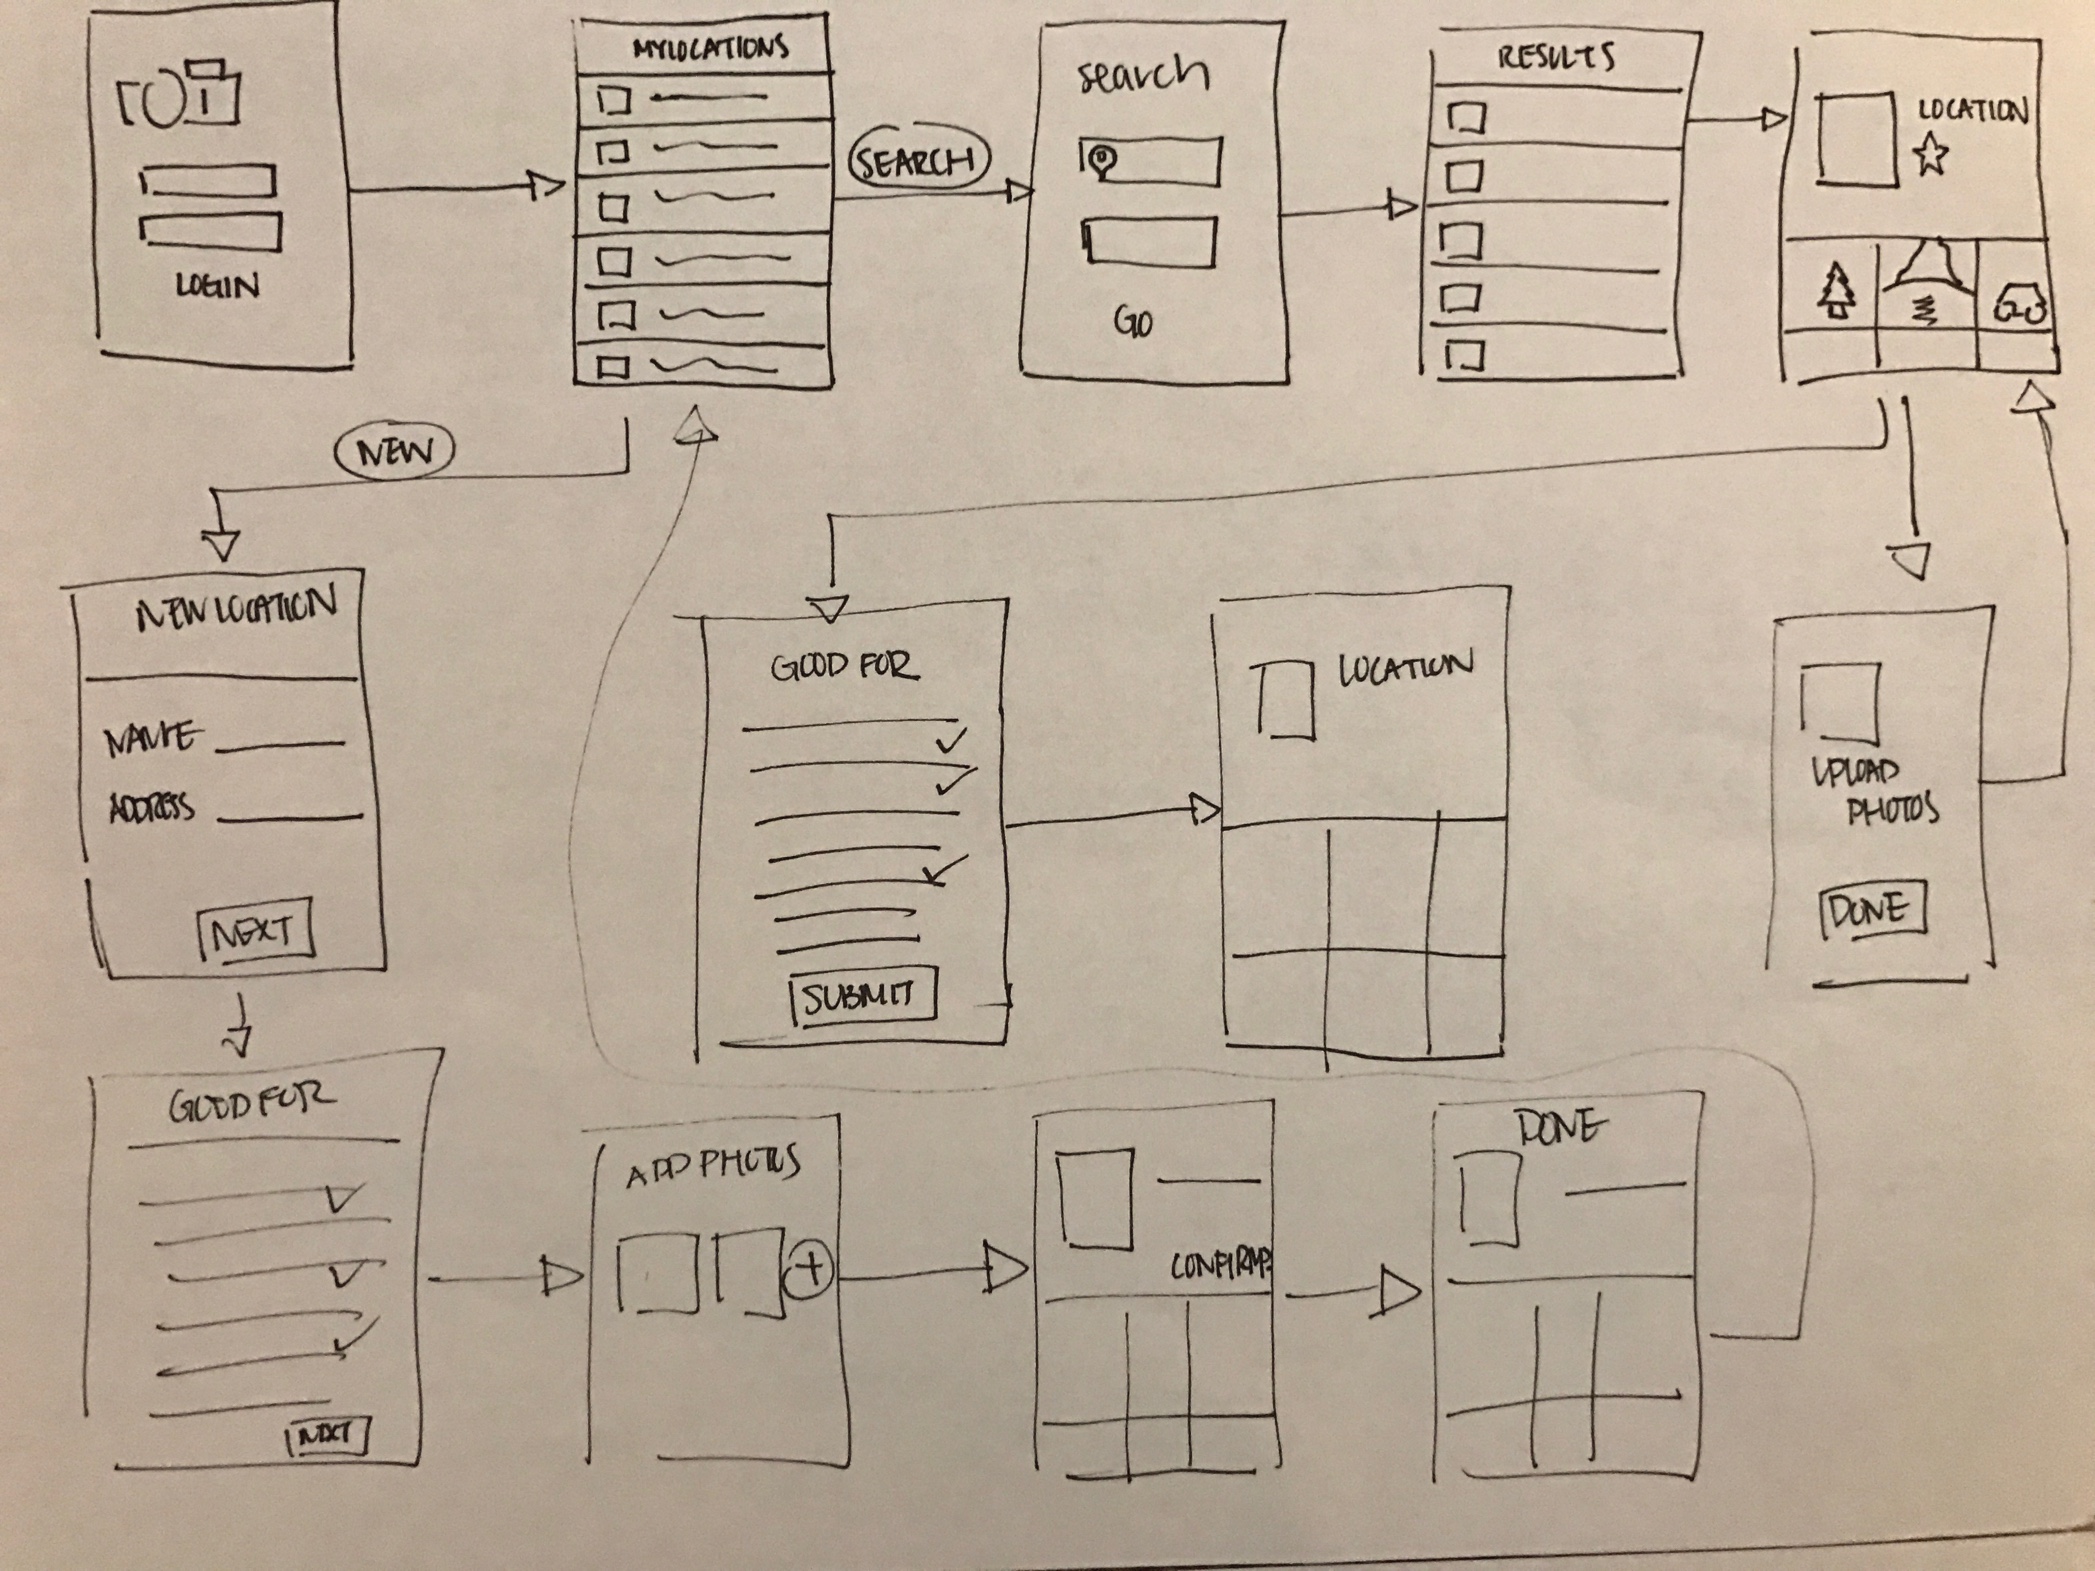 LOGIN
MY LOCATIONS
SEARCH
search
GO
RESULTS
LOCATION
NEW
NEW LOCATION
NAME
ADDRESS
NEXT
GOOD FOR
SUBMIT
LOCATION
UPLOAD
PHOTOS
DONE
GOOD FOR
NEXT
ADD PHOTOS
+
CONFIRM?
DONE